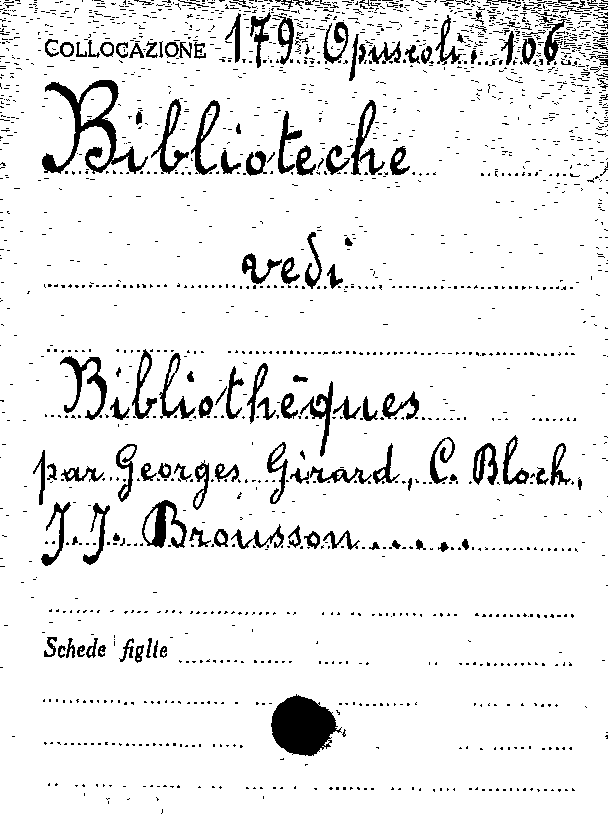 COLLOCAZIONE 179. Opuscoli. 106
Biblioteche
vedi
Bibliothèques
par Georges Girard, C. Bloch,
J. J. Brousson.....
Schede figlie